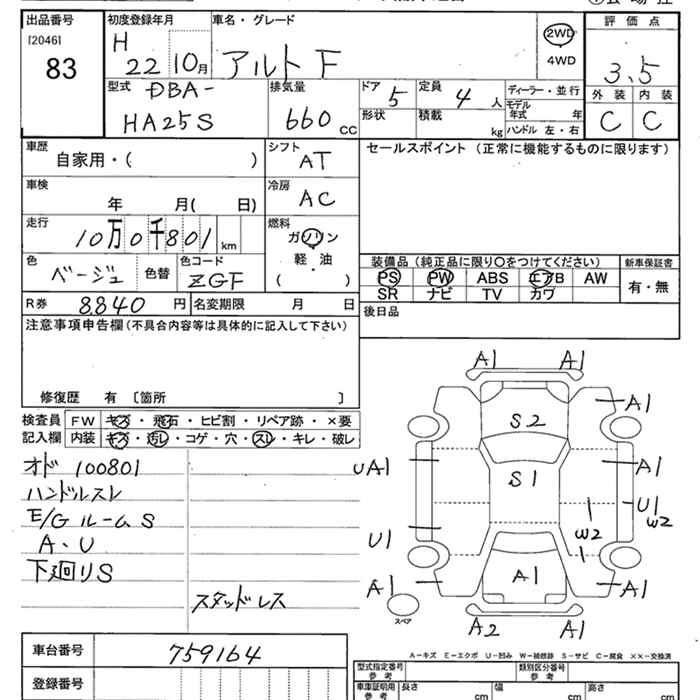 出品番号 初度登録年月 車名・グレード 評価点
[2046] H
83 22 10月 アルト F 2WD 3.5
4WD
型式 DBA- 排気量 ドア 5 定員 4 人 ディーラー・並行 外装 内装
HA25S 660 CC 形状 積載 kg モデル年式 年 C C
ハンドル 左・右
車歴 シフト セールスポイント (正常に機能するものに限ります)
自家用・( ) AT
車検 冷房
年 月( 日) AC
走行 燃料
10万0千801 km ガソリン
軽・油
( )
色 色コード 装備品(純正品に限り○をつけてください) 新車保証書
ベージュ 色替 ZGF PS PW ABS エアB AW 有・無
SR ナビ TV カワ
R券 8840 円 名変期限 月 日 後日品
注意事項申告欄(不具合内容等は具体的に記入して下さい)
修復歴 有 〔箇所 〕
検査員 FW キズ・飛石・ヒビ割・リペア跡・×要
記入欄 内装 キズ・汚レ・コゲ・穴・スレ・キレ・破レ
オド 100801
ハンドルスレ
E/GルームS
A・U
下廻りS
スタッドレス
A1 A1
S2 A1
UA1 S1 A1
U1
W2
U1 W2
A1 A1 A1
スペア
A2 A1
A-キズ E-エクボ U-凹み W-補修跡 S-サビ C-腐食 ××-交換済
車台番号 759164
登録番号
型式指定番号 参考 類別区分番号 参考
車庫証明用 参考 長さ cm 幅 cm 高さ cm